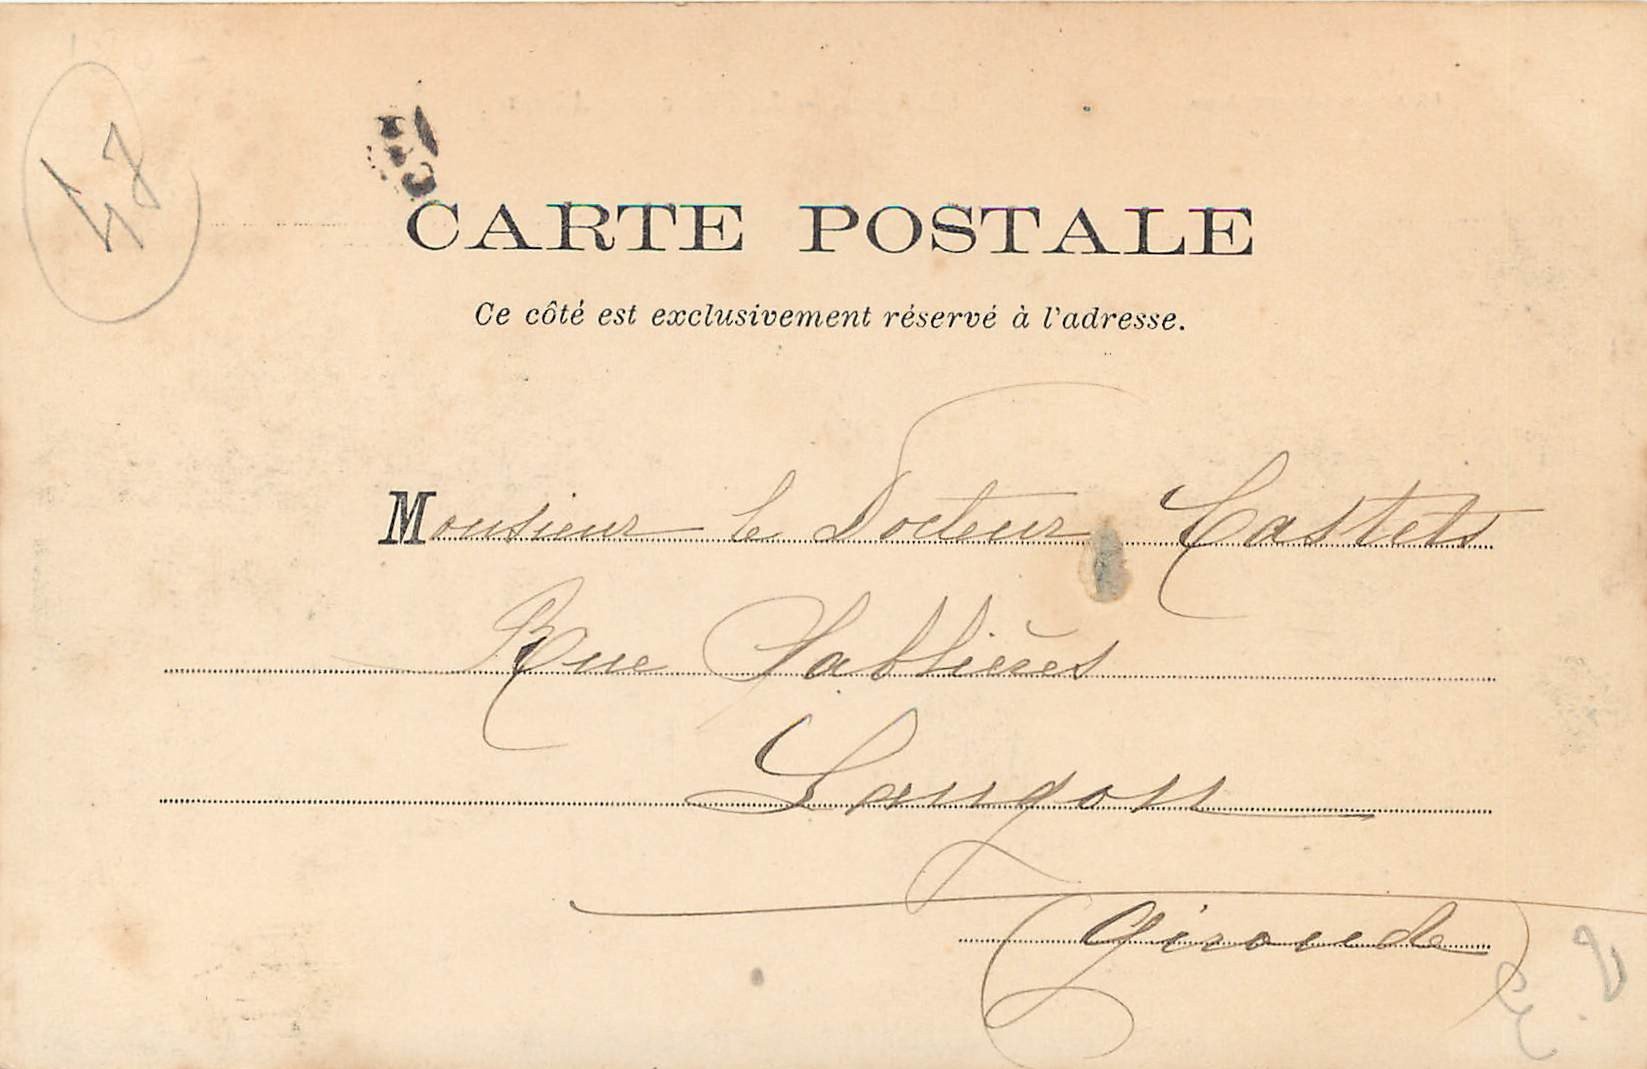 47
CARTE POSTALE
Ce côté est exclusivement réservé à l'adresse.
Monsieur le Docteur Castets
Rue Sablières
Langon
(Gironde)